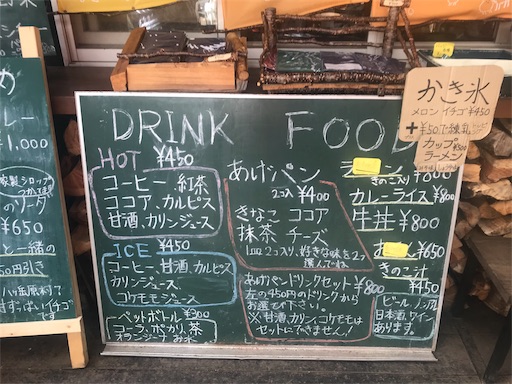 DRINK
HOT ¥450
コーヒー、紅茶
ココア、カルピス
甘酒、カリンジュース
ICE ¥450
コーヒー、甘酒、カルピス
カリンジュース
コケモモジュース
ペットボトル ¥300
コーラ、ポカリ、茶
オランジーナ お水
FOOD
あげパン
2コ入 ¥400
きなこ ココア
抹茶 チーズ
1皿2コ入り、好きな味を2コ
選んでね
あげパンドリンクセット ¥800
左の450円のドリンクから
お選び下さい。
※甘酒、カリン、コケモモは
セットにできません!
きのこ入り ¥800
カレーライス ¥800
牛丼 ¥800
¥650
きのこ汁
¥450
ビール
日本酒、ワイン
あります。
かき氷
メロン イチゴ ¥450
+¥50で練乳
カップ
ラーメン
¥300
¥1,000
¥650
と一緒の
50円引き
すっぱいイチゴ
です